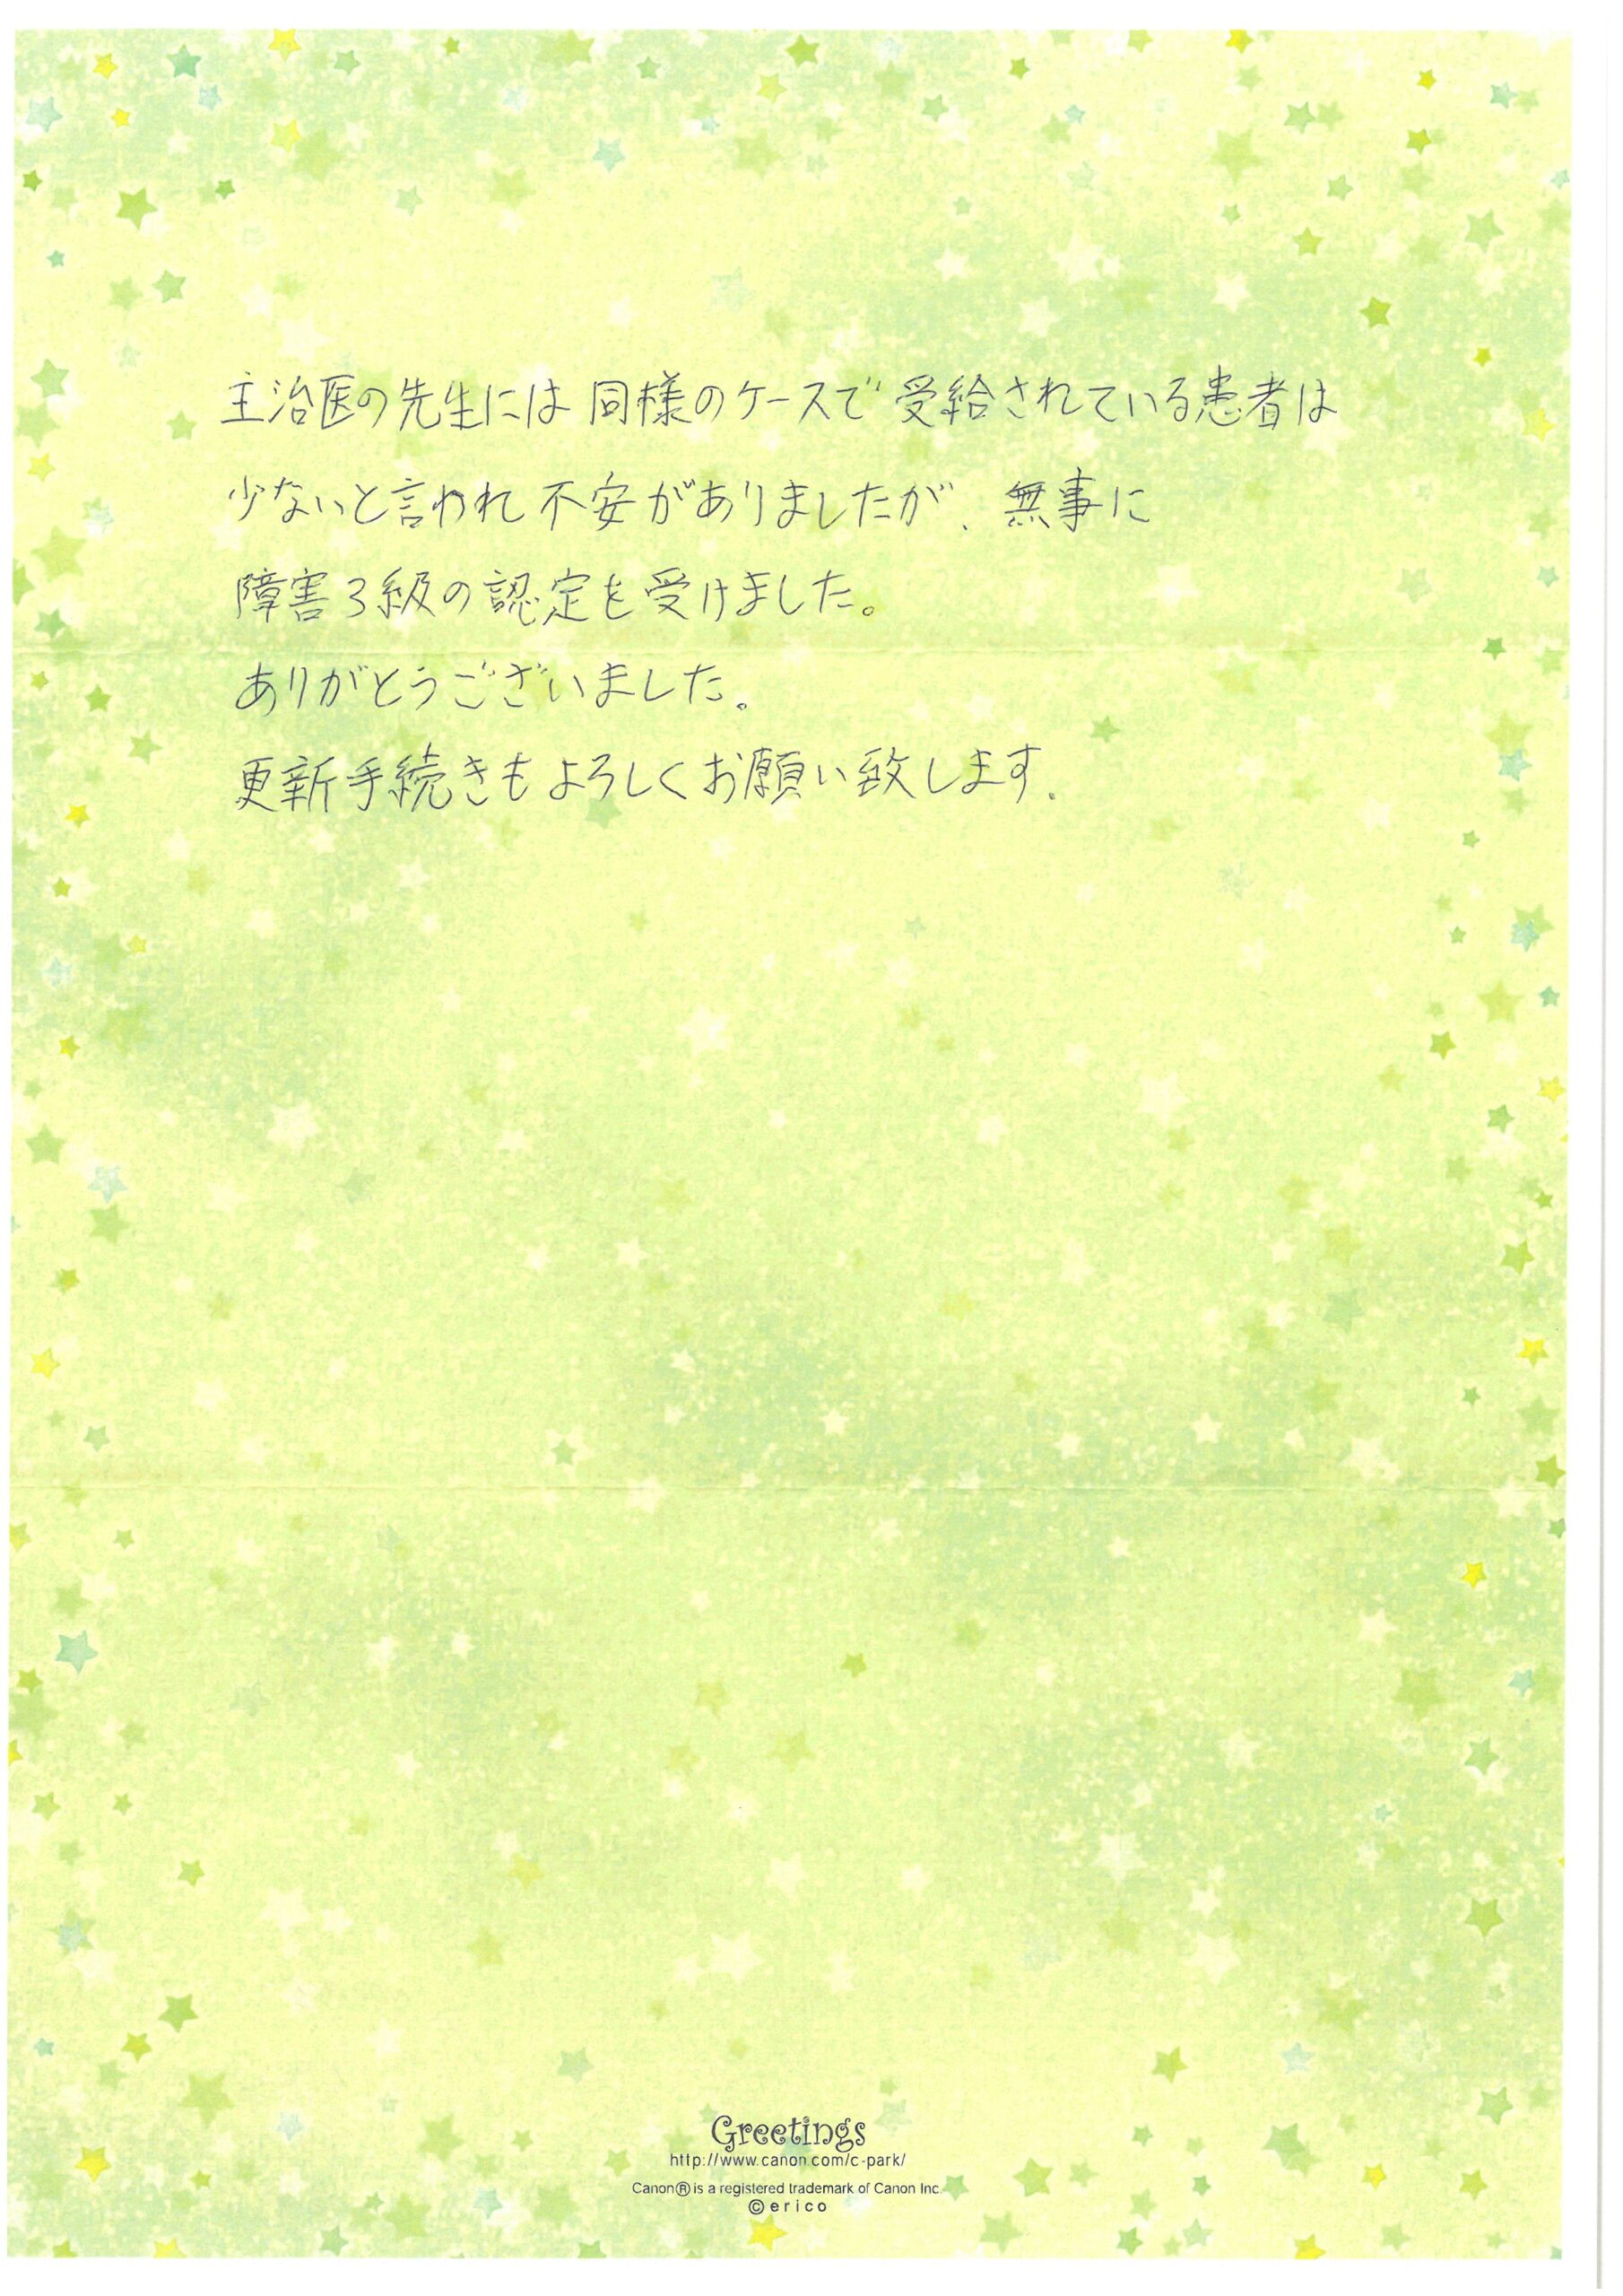 主治医の先生には同様のケースで受給されている患者は
少ないと言われ不安がありましたが、無事に
障害3級の認定を受けました。
ありがとうございました。
更新手続きもよろしくお願い致します.
Greetings
http://www.canon.com/c-park/
Canon® is a registered trademark of Canon Inc.
© erico